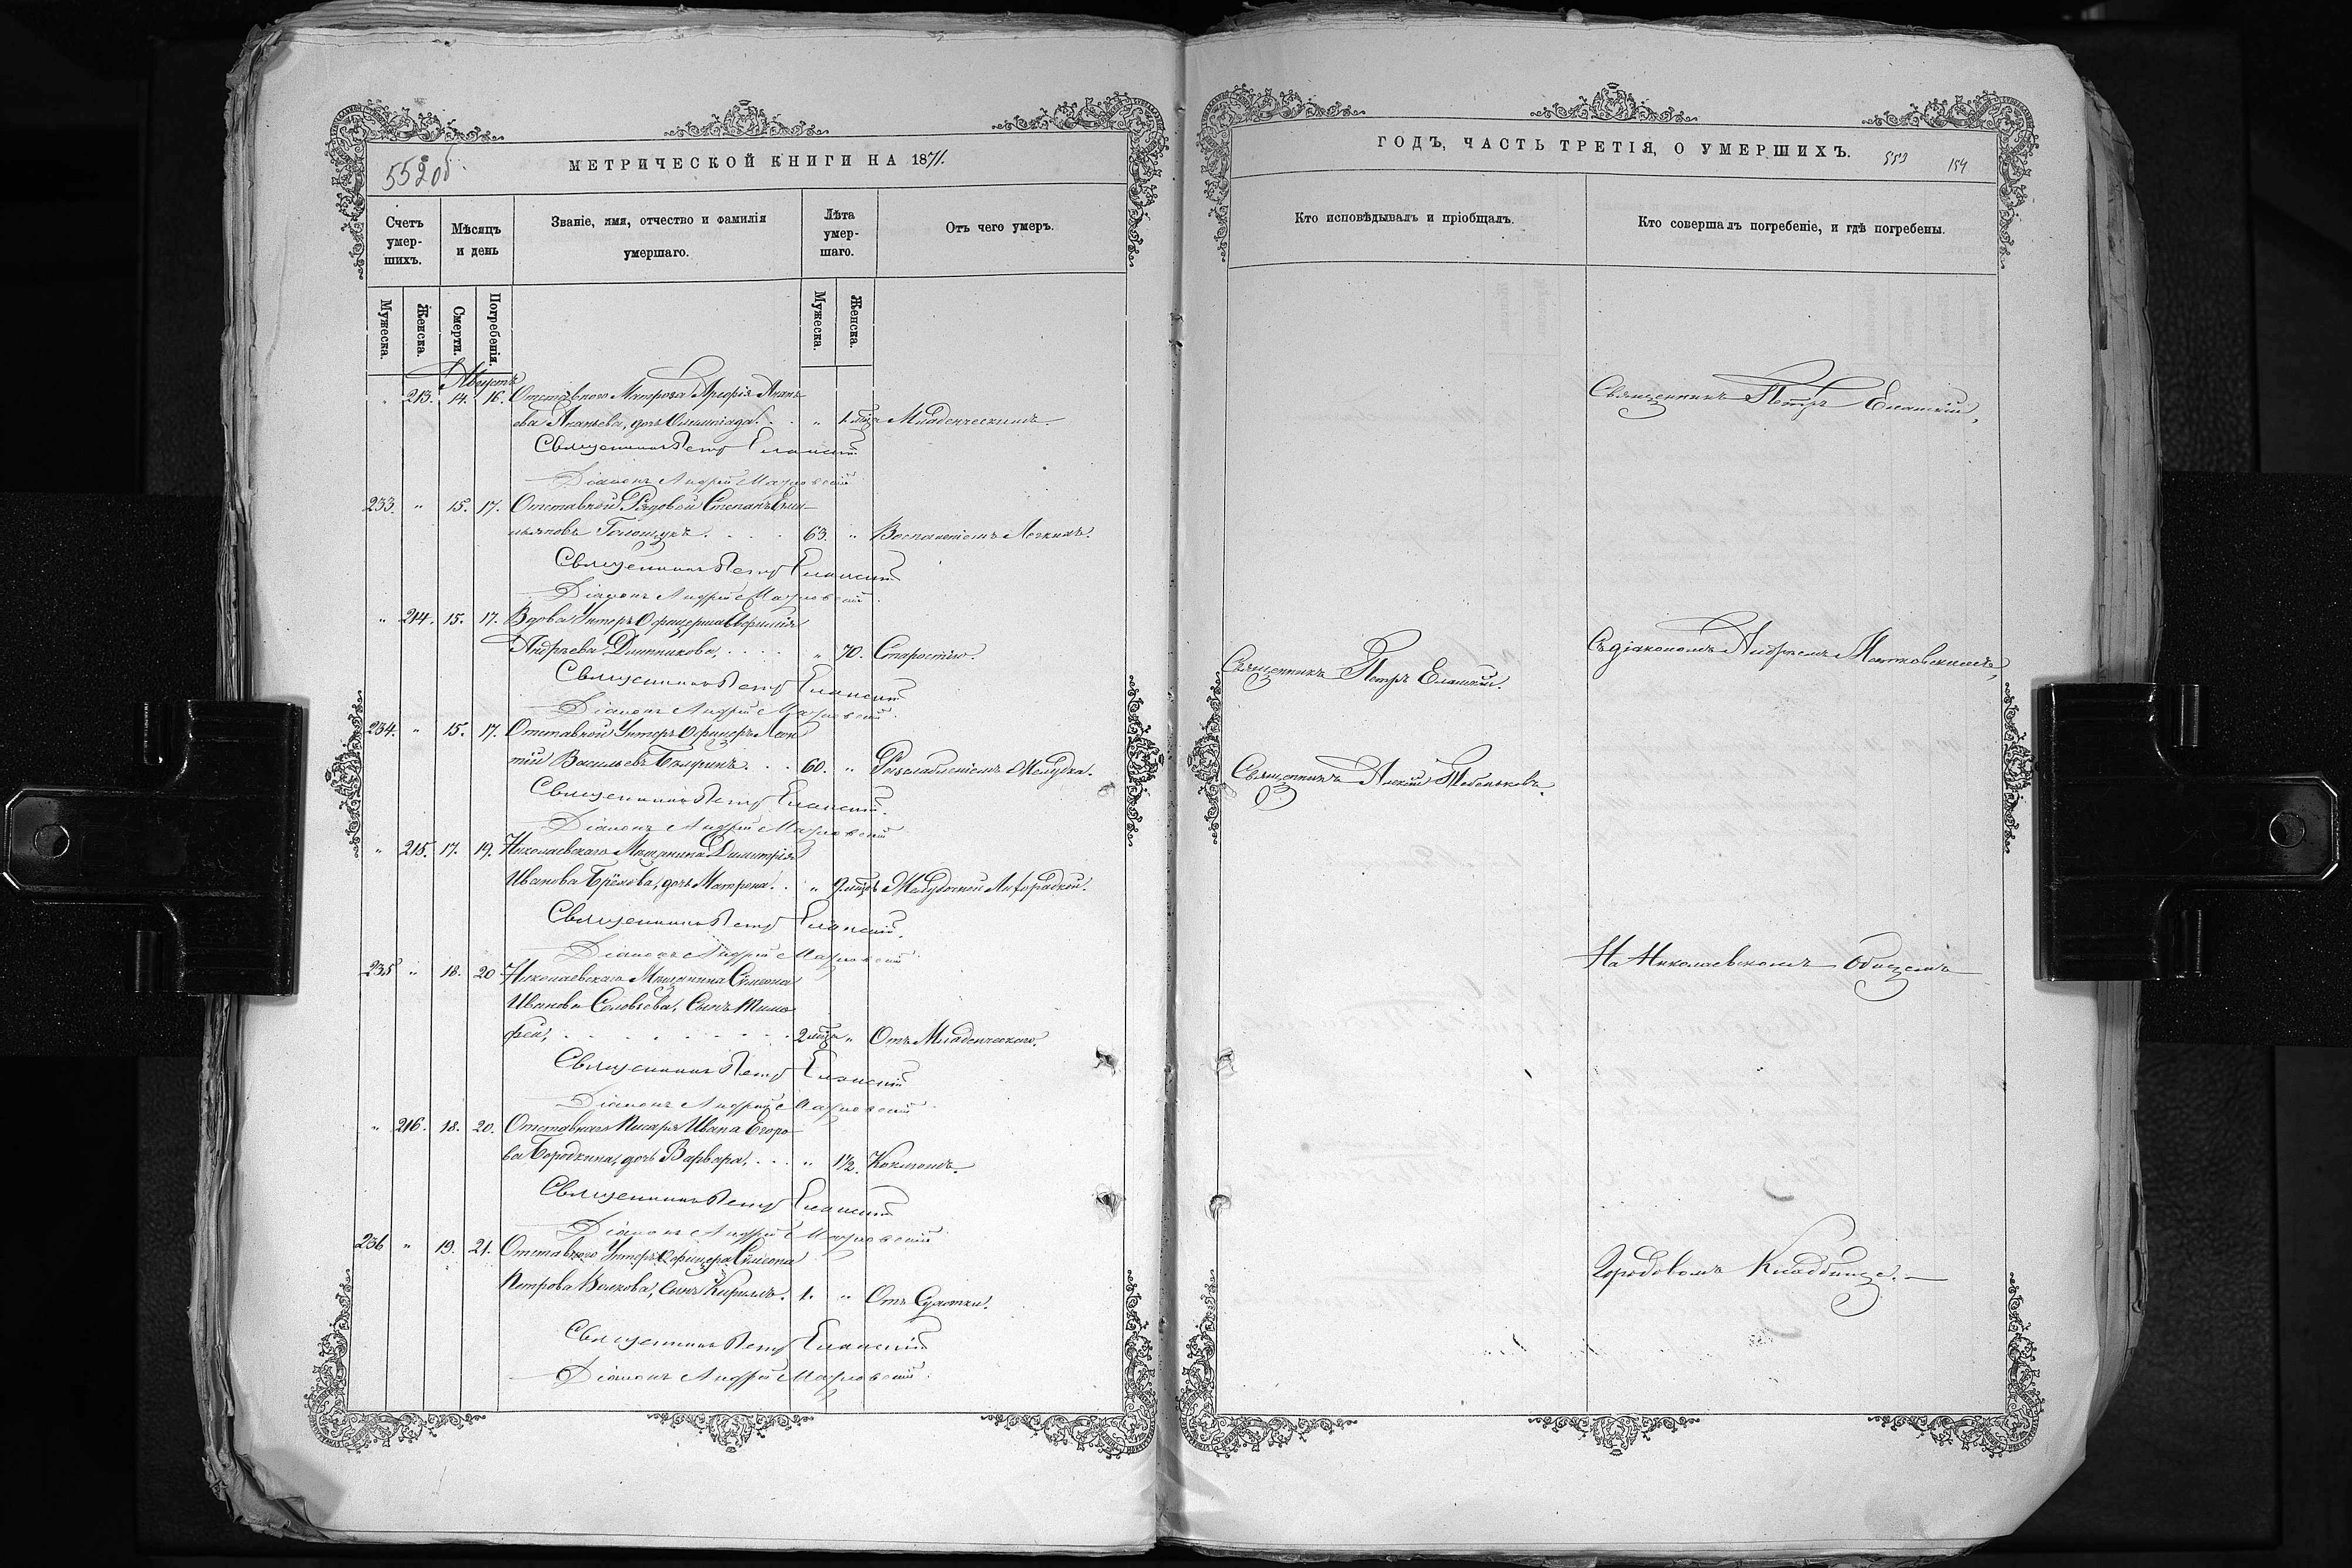 552 об.
МЕТРИЧЕСКОЙ КНИГИ НА 1871.
Счетъ умер-шихъ.
Мѣсяцъ и день
Званіе, имя, отчество и фамилія умершаго.
Лѣта умер-шаго.
Отъ чего умеръ.
Мужеска. Женска. Смерти. Погребенія. Мужеска. Женска.
Августъ
" 213. 14. 16. Отставного Матроса Арефія Анань-
ева Ананьева, дочь Олимпіада. " 1 мѣца Младенческимъ.
Священникъ Петръ Еланскій
Діаконъ Андрей
233. " 15. 17. Отставной Рядовой Степанъ Емель-
ьяновъ 63. " Воспаленіемъ Легкихъ.
Священникъ Петръ Еланскій
Діаконъ Андрей
" 214. 15. 17. Вдова Унтеръ Офицерша Евфимія
Андреева " 70. Старостію.
Священникъ Петръ Еланскій
Діаконъ Андрей
234. " 15. 17. Отставной Унтеръ Офицеръ Леон
тій Васильевъ 60. " Разслабленіемъ Желудка.
Священникъ Петръ Еланскій
Діаконъ Андрей
" 215. 17. 19. Николаевскаго Мѣщанина Димитрія
Иванова дочь Матрона. " 9 мѣцъ Желудочной Лихорадкой.
Священникъ Петръ Еланскій.
Діаконъ Андрей
235 " 18. 20 Николаевскаго Мѣщанина Сѵмеона
Иванова Соловьева, Сынъ Тимо
фей, 2 мѣца " Отъ Младенческаго.
Священникъ Петръ Еланскій
Діаконъ Андрей
" 216. 18. 20. Отставнаго Писаря Ивана Егоро-
ва Бородкина, дочь Варвара, " 1½. Коклюшъ.
Священникъ Петръ Еланскій
Діаконъ Андрей
236 " 19. 21. Отставного Унтеръ Офицера Сѵмеона
Петрова Волкова, Сынъ Кириллъ. 1. " Отъ Сухотки.
Священникъ Петръ Еланскій
Діаконъ Андрей
ГОДЪ, ЧАСТЬ ТРЕТІЯ, О УМЕРШИХЪ.
553 154
Кто исповѣдывалъ и пріобщалъ.
Кто совершалъ погребеніе, и гдѣ погребены.
Священникъ Петръ Еланскій,
Съ діакономъ Андреемъ
Священникъ Петръ Еланскій.
Священникъ Алексій
На Николаевскомъ Общемъ
Городовомъ Кладбище.